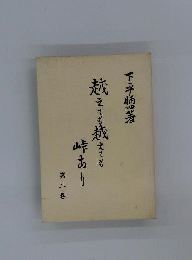 下平暢四著
越えても越えても
峠あり
第二巻